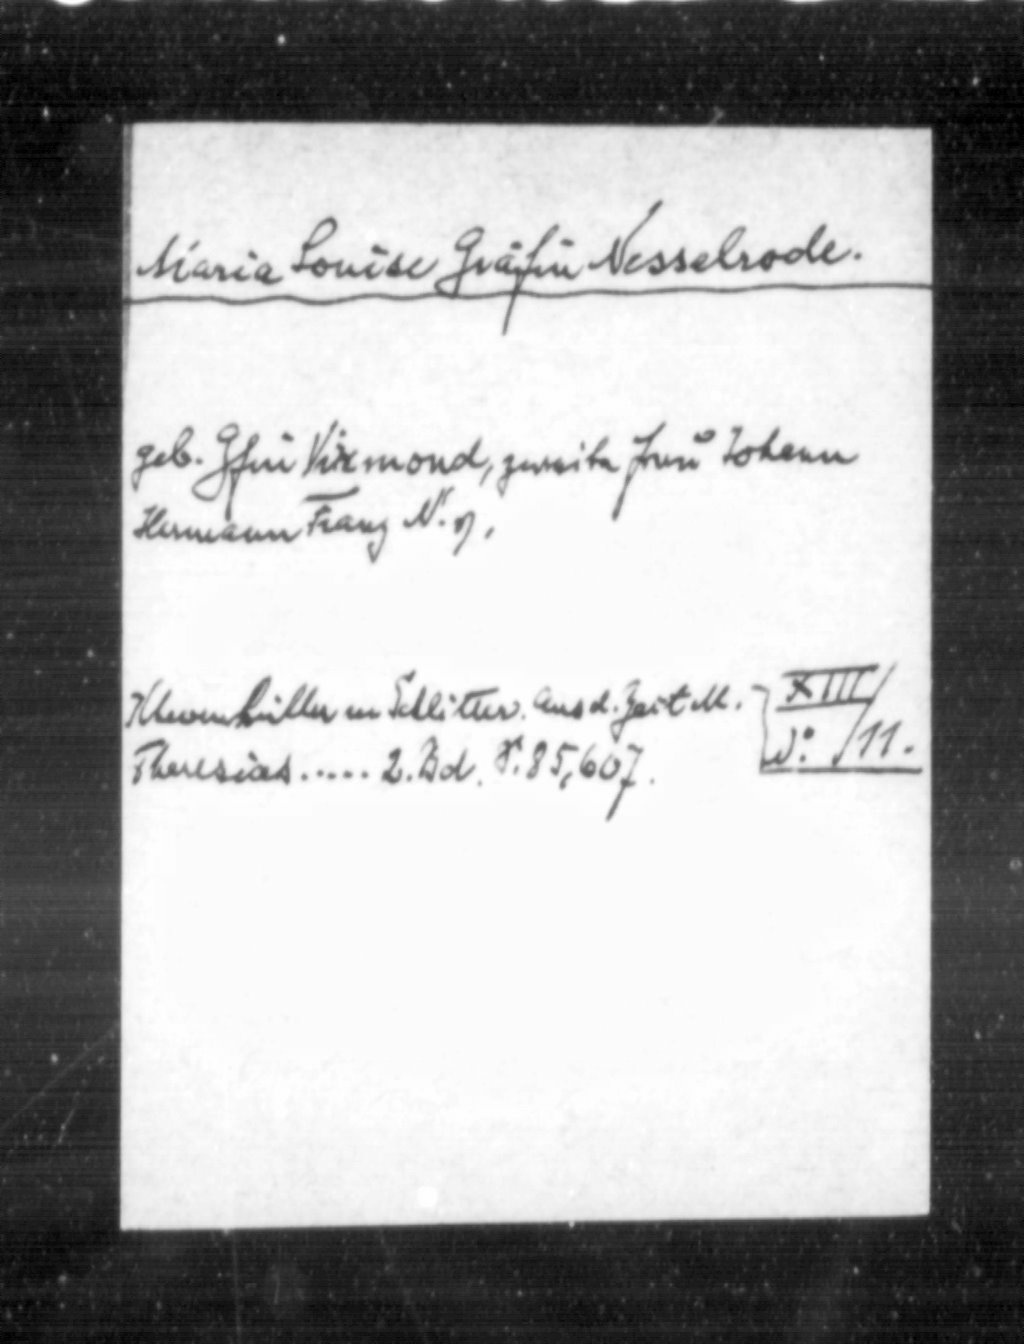 Maria Louise Gräfin Nesselrode.
geb. Gfin Virmond, zweite Frau Johann
Hermann Franz N.
Khevenhüller u Schlitter. Aus d. Zeit M.
Theresias ..... 2. Bd. S. 85, 607.
XIII/
No. /11.